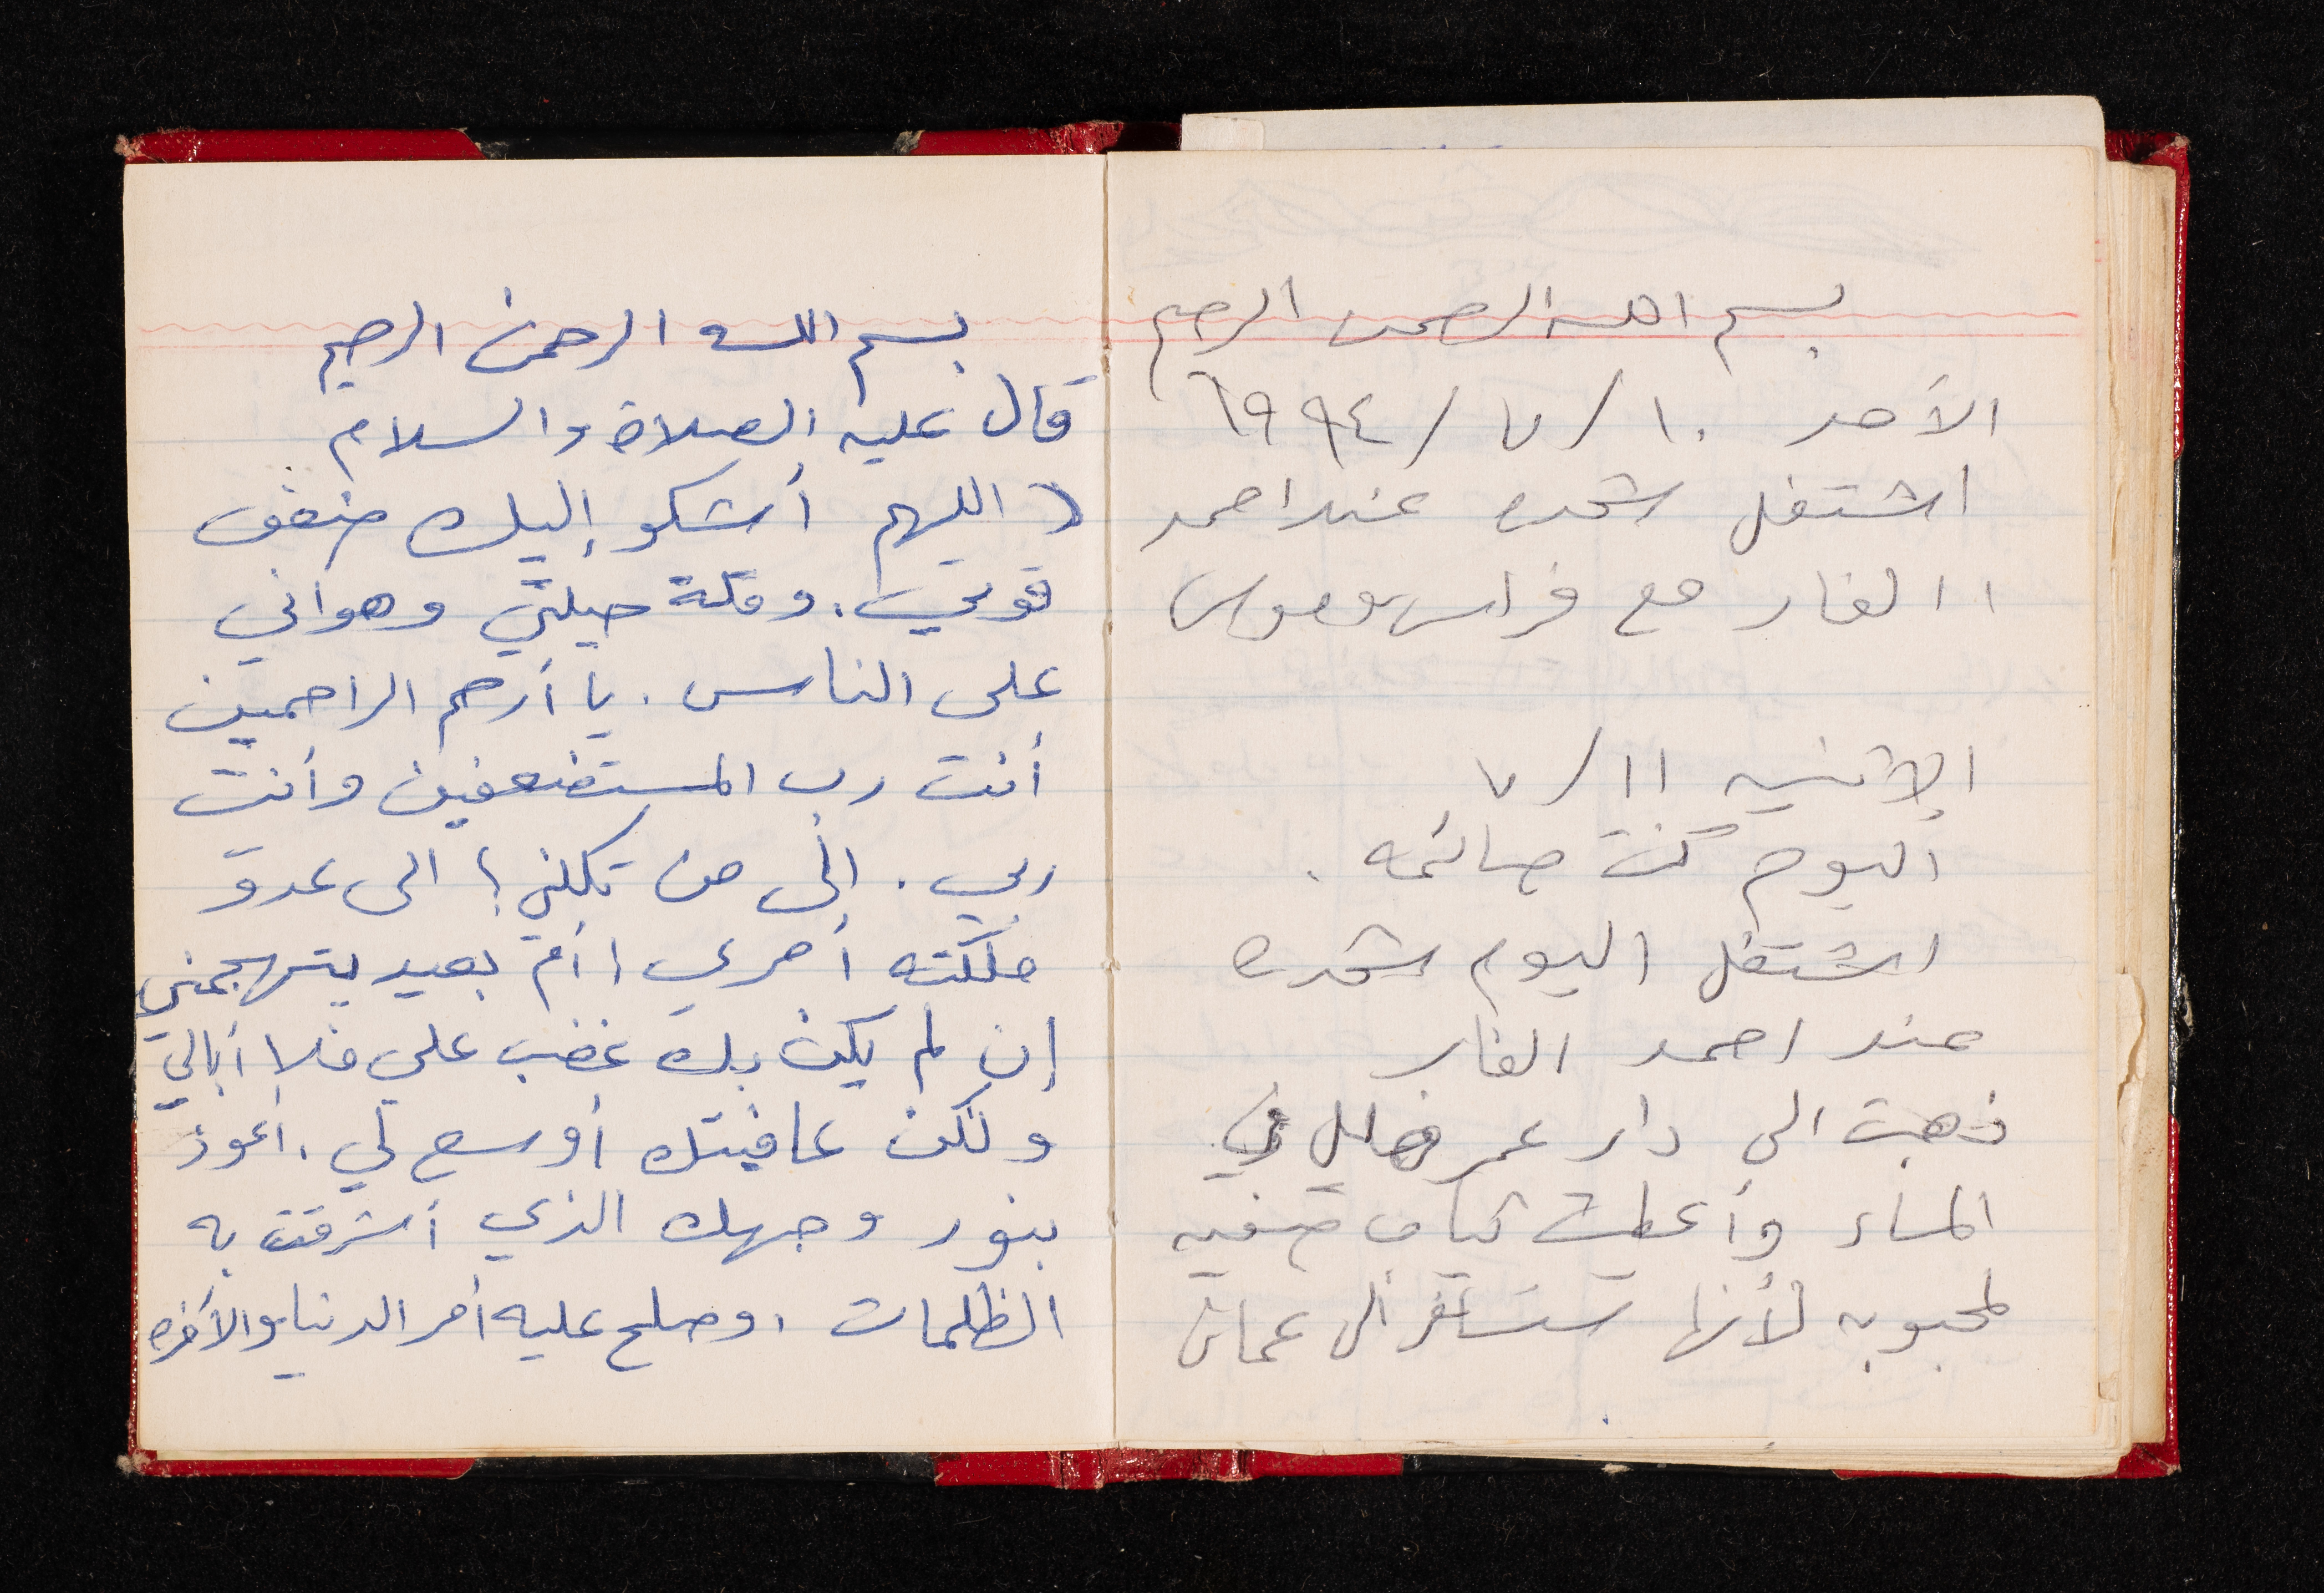 بسم الله الرحمن الرحيم
الأحد ١٠/٧/١٩٩٤
اشتغل شحده عند احمد
الفار مع فراس وموسى
الإثنين ١١/٧
اليوم كنت صائمه.
اشتغل اليوم شحده
عند احمد الفار
ذهبت الى دار عمر في
المساء وأعطيت كتاب صفيه
لمحبوبه لأنها ستسافر الى عمان
بسم الله الرحمن الرحيم
قال عليه الصلاة والسلام
(اللهم أشكو إليك ضعف
قوتي. وقلة حيلتي وهواني
على الناس. يا أرحم الراحمين
أنت رب المستضعفين وأنت
ربي. إلى من تكلني؛ الى عدوّ
ملكته أمري، أم بعيد يتهجمني
إن لم يكن بك غضب علي فلا أبالي
ولكن عافيتك أوسع لي، أعوذ
بنور وجهك الذي أشرقت به
الظلمات، وصلح عليه أمر الدنيا والآخره